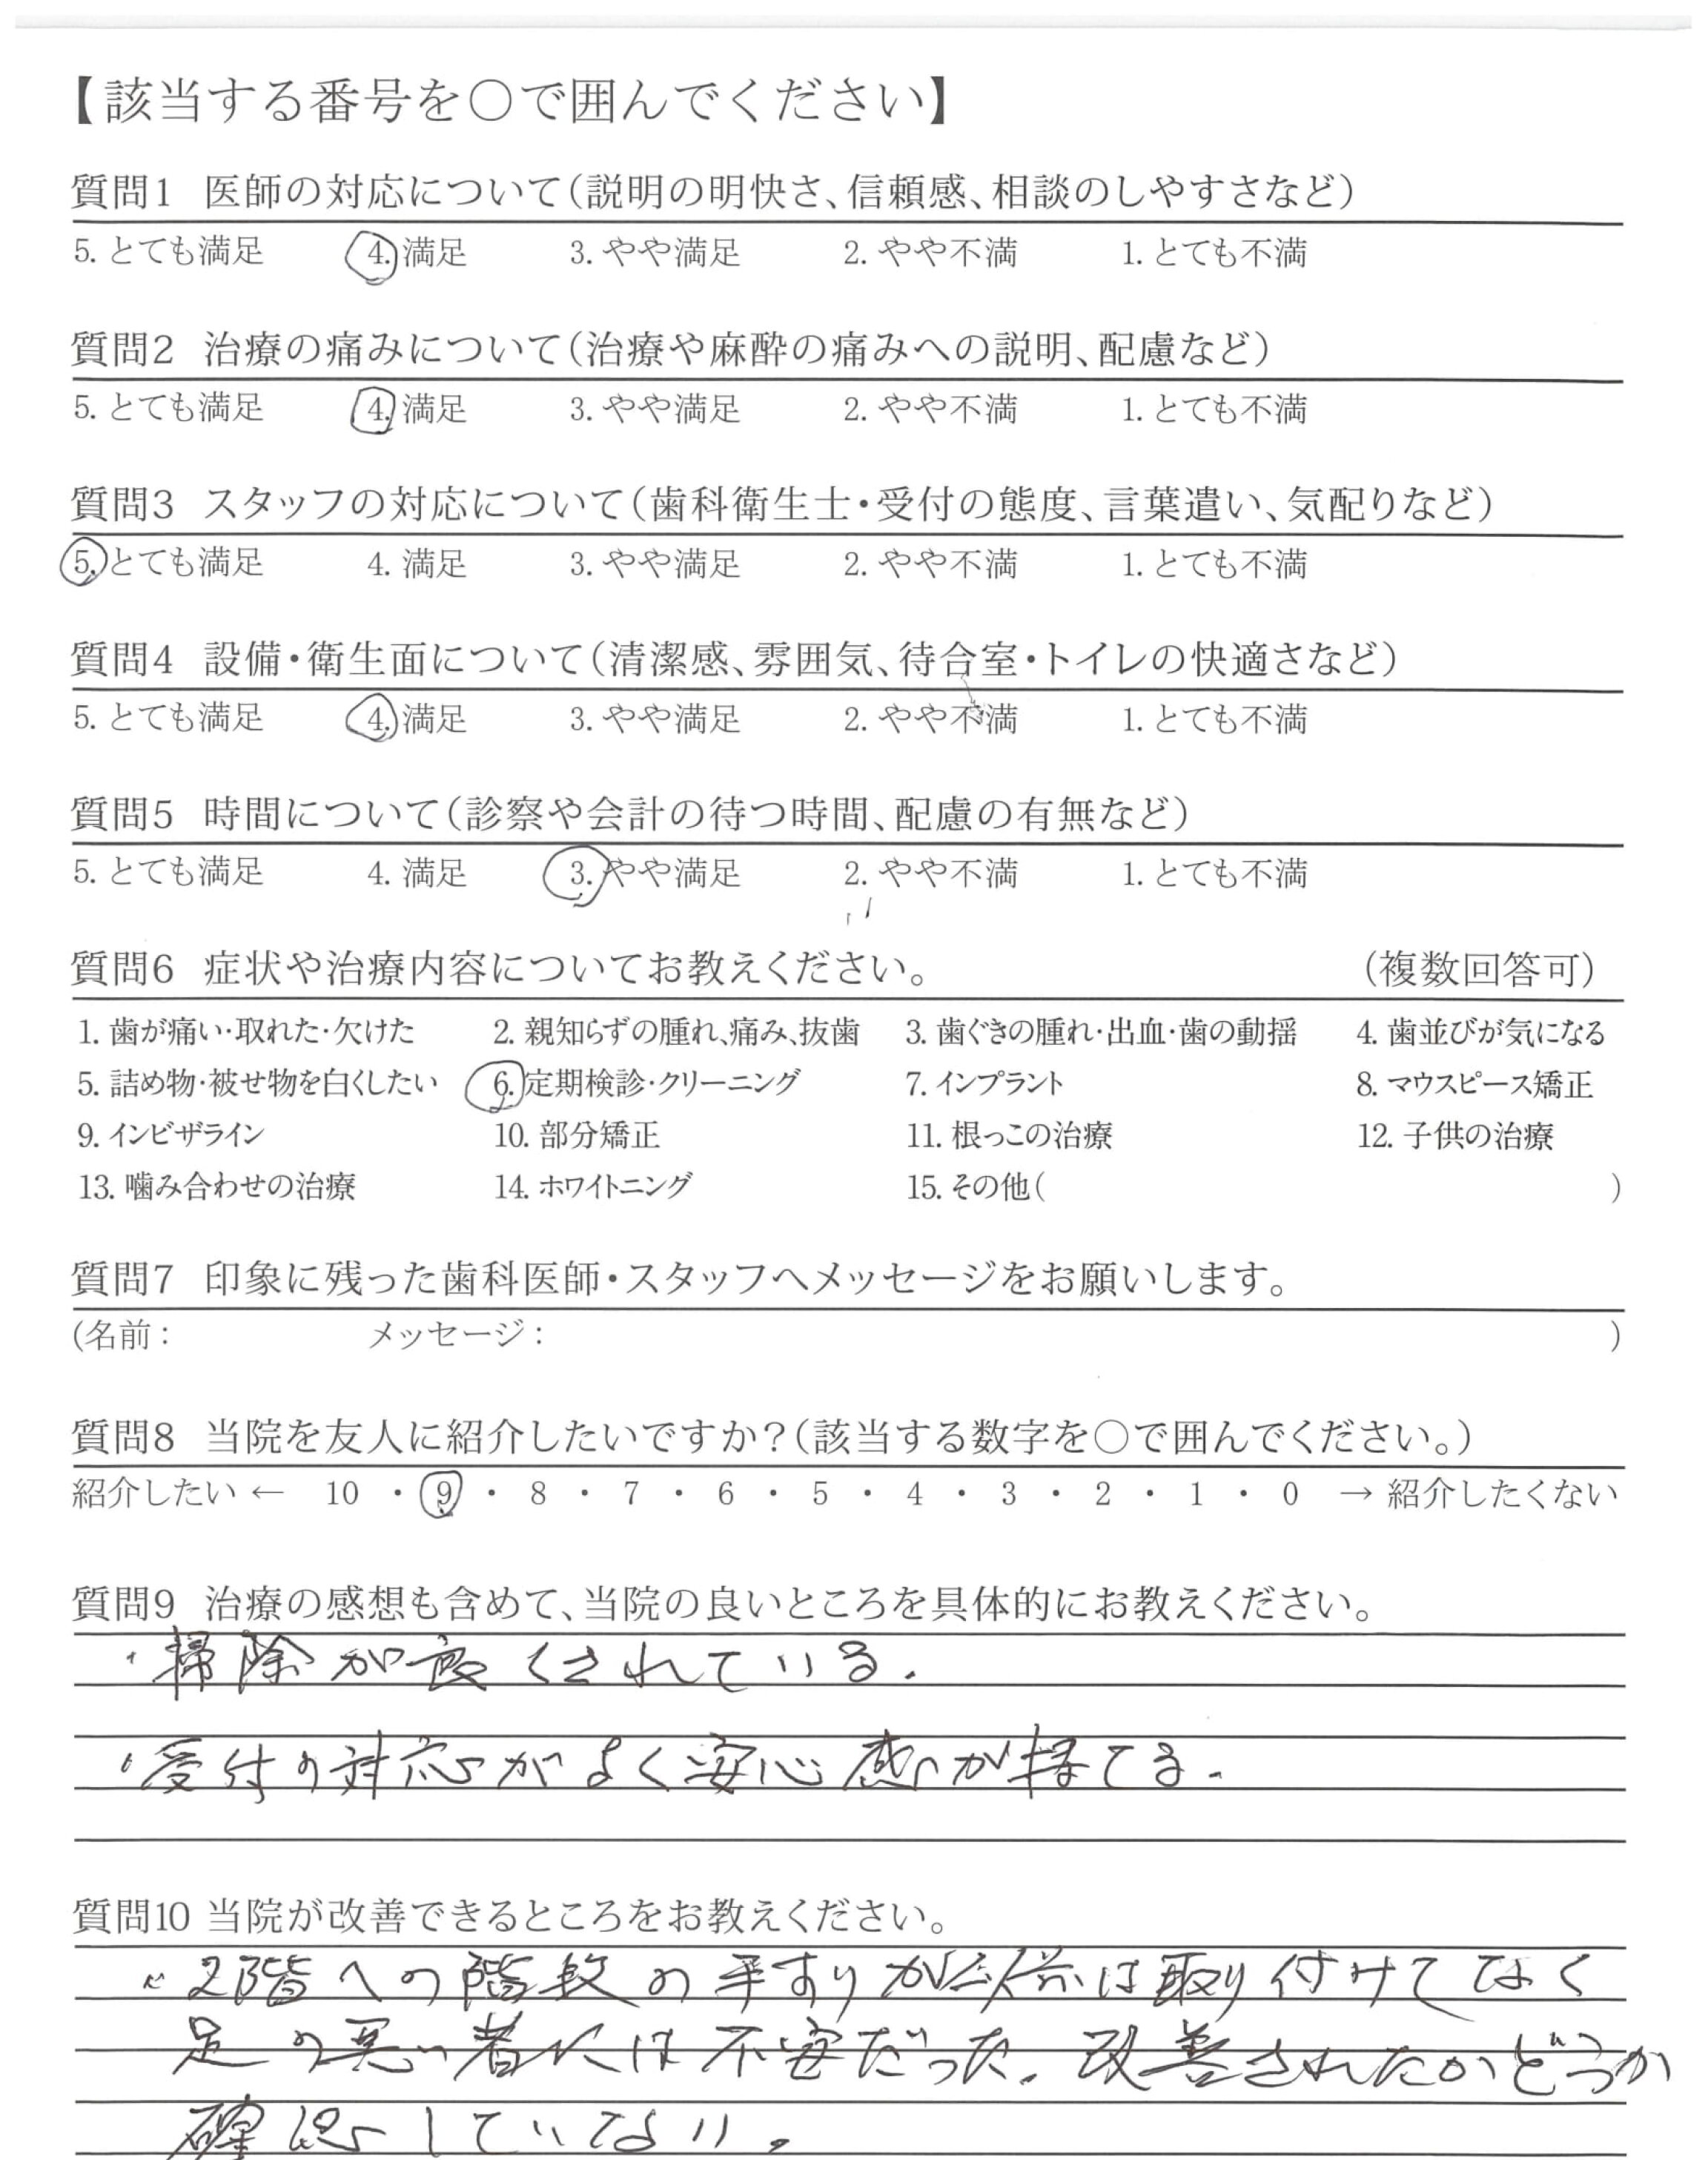 【該当する番号を○で囲んでください】
質問1 医師の対応について(説明の明快さ、信頼感、相談のしやすさなど)
5. とても満足 4. 満足 3. やや満足 2. やや不満 1. とても不満
質問2 治療の痛みについて(治療や麻酔の痛みへの説明、配慮など)
5. とても満足 4. 満足 3. やや満足 2. やや不満 1. とても不満
質問3 スタッフの対応について(歯科衛生士・受付の態度、言葉遣い、気配りなど)
5. とても満足 4. 満足 3. やや満足 2. やや不満 1. とても不満
質問4 設備・衛生面について(清潔感、雰囲気、待合室・トイレの快適さなど)
5. とても満足 4. 満足 3. やや満足 2. やや不満 1. とても不満
質問5 時間について(診察や会計の待つ時間、配慮の有無など)
5. とても満足 4. 満足 3. やや満足 2. やや不満 1. とても不満
質問6 症状や治療内容についてお教えください。 (複数回答可)
1. 歯が痛い・取れた・欠けた 2. 親知らずの腫れ、痛み、抜歯 3. 歯ぐきの腫れ・出血・歯の動揺 4. 歯並びが気になる
5. 詰め物・被せ物を白くしたい 6. 定期検診・クリーニング 7. インプラント 8. マウスピース矯正
9. インビザライン 10. 部分矯正 11. 根っこの治療 12. 子供の治療
13. 噛み合わせの治療 14. ホワイトニング 15. その他( )
質問7 印象に残った歯科医師・スタッフへメッセージをお願いします。
(名前: メッセージ: )
質問8 当院を友人に紹介したいですか?(該当する数字を○で囲んでください。)
紹介したい ← 10 ・ 9 ・ 8 ・ 7 ・ 6 ・ 5 ・ 4 ・ 3 ・ 2 ・ 1 ・ 0 → 紹介したくない
質問9 治療の感想も含めて、当院の良いところを具体的にお教えください。
・掃除が良くされている.
・受付の対応がよく安心感が持てる.
質問10 当院が改善できるところをお教えください。
・2階への階段の手すりが以前は取り付けてなく
足の悪い者には不安だった。改善されたかどうか
確認していない。